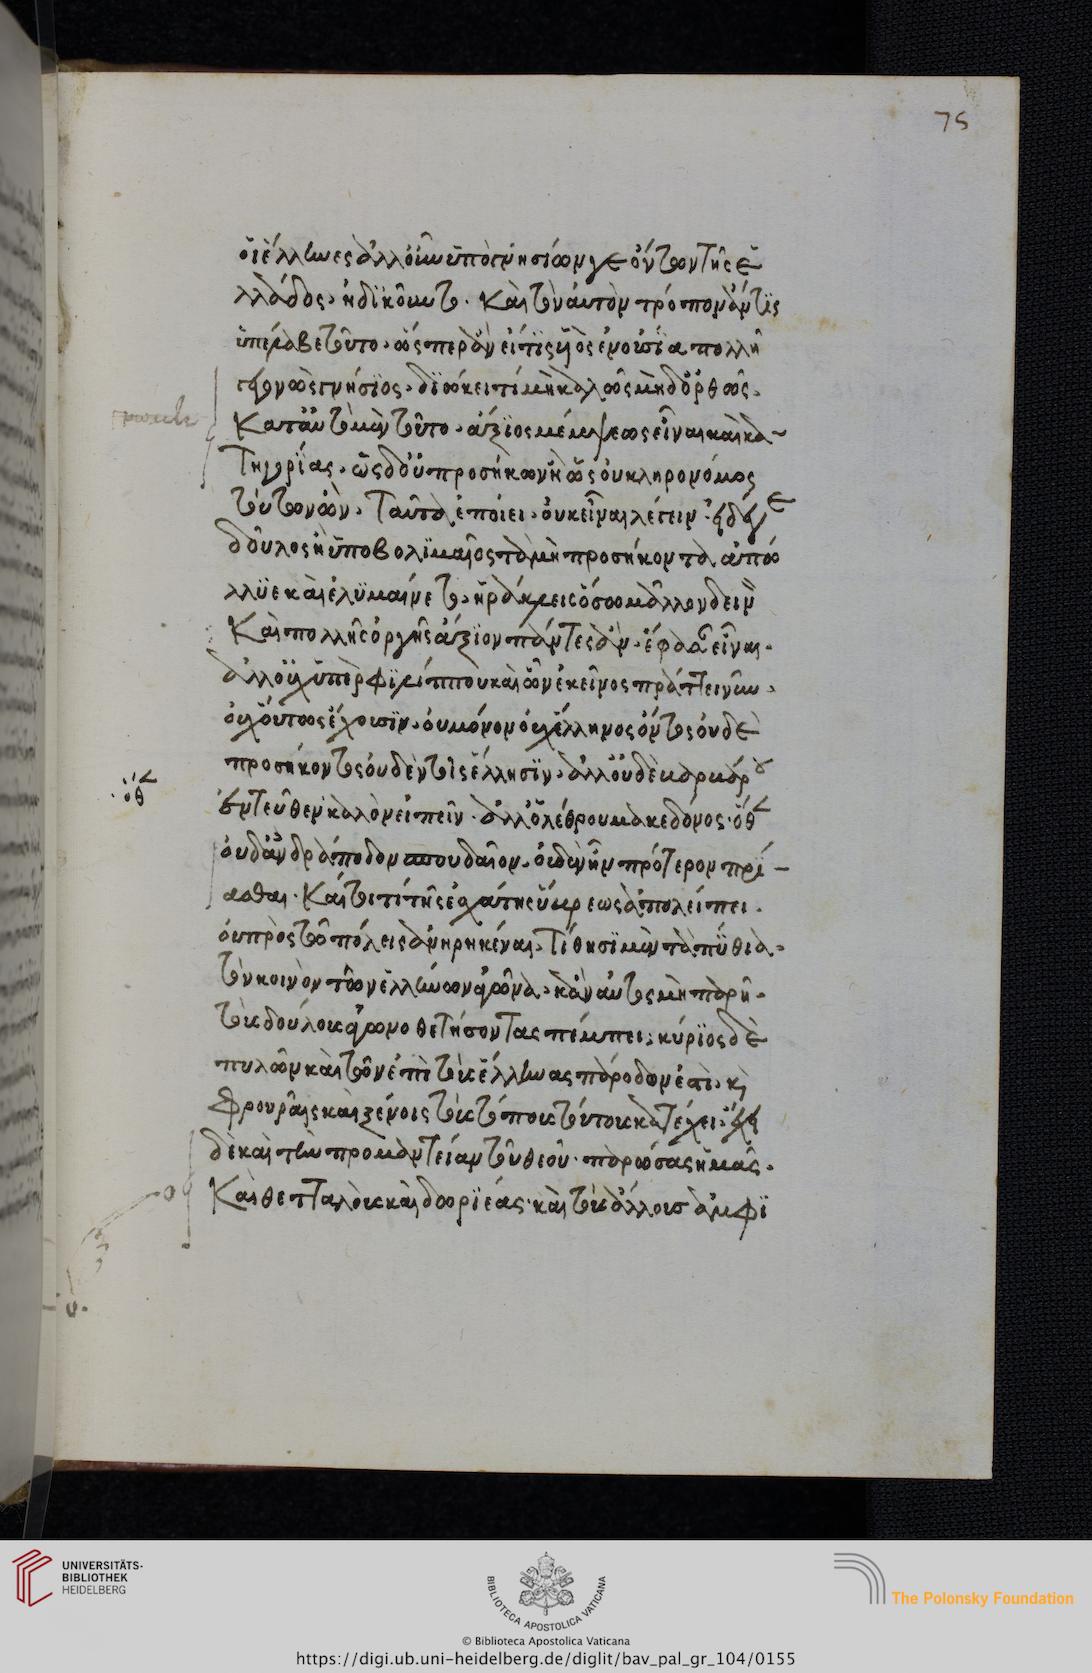 75
οἱ ἕλληνες ἀλλ' οὖν ὑπὸ γνησίων γε ὄντων τῆς ἑ
λλάδος, ἠδικοῦντο. καὶ τὸν αὐτὸν τρόπον ἄν τις
ὑπέλαβε τοῦτο, ὥσπερ ἂν εἴ τις υἱὸς ἐν οὐσία πολλῆ
γεγονὼς γνήσιος, διώκει τι μὴ καλῶς μὴδ' ὀρθῶς,
κατ' αὐτὸ μὲν τοῦτο, ἄξιος μέμψεως εἶναι καὶ κα
τηγορίας, ὡς δ' οὐ προσήκων ἢ ὡς οὐ κληρονόμος
τούτων ὢν, ταῦτα ἐποίει, οὐκ εἶναι λέγειν. εἰ δέ γε
δοῦλος ἢ ὑποβολιμαῖος τὰ μὴ προσήκοντα ἀπώ
λλυε καὶ ἐλυμαίνετο, ἡράκλεις ὅσω μᾶλλον δεινὸν
καὶ πολλῆς ὀργῆς ἄξιον πάντες ἂν, ἔφασαν εἶναι.
ἀλλ' οὐχ ὑπὲρ φιλίππου καὶ ὧν ἐκεῖνος πράττει νῦν,
οὐχ οὕτως ἔχουσιν, οὐ μόνον οὐχ ἕλληνος ὄντος οὐδὲ
προσήκοντος οὐδὲν τοῖς ἕλλησιν, ἀλλ' οὐδὲ βαρβάρου
ἐντεῦθεν καλὸν εἰπεῖν. ἀλλ' ὀλέθρου μακεδόνος. ὅθεν
ὅθεν
οὐδ' ἀνδράποδον σπουδαῖον, οὐδὲν ἦν πρότερον πρί
ασθαι. καίτοι τί τῆς ἐσχάτης ὕβρεως ἀπολείπει.
οὐ πρὸς τῶ πόλεις ἀνηρηκέναι, τίθησι μὲν τὰ πύθια,
τὸν κοινὸν τῶν ἑλλήνων ἀγῶνα, κἂν αὐτὸς μὴ παρῆ,
τοὺς δούλους ἀγωνοθετήσοντας πέμπει; κύριος δὲ
πυλῶν καὶ τῶν ἐπὶ τοὺς ἕλληνας παρόδων ἐστὶ, καὶ
φρουραῖς καὶ ξένοις τοὺς τόπους τούτους κατέχει; ἔχει
δὲ καὶ τὴν προμαντείαν τοῦ θεοῦ, παρώσας ἡμᾶς,
καὶ θετταλοὺς καὶ δωριέας, καὶ τοὺς ἄλλους ἀμφι
UNIVERSITÄTS-
BIBLIOTHEK
HEIDELBERG
BIBLIOTECA APOSTOLICA VATICANA
The Polonsky Foundation
© Biblioteca Apostolica Vaticana
https://digi.ub.uni-heidelberg.de/diglit/bav_pal_gr_104/0155